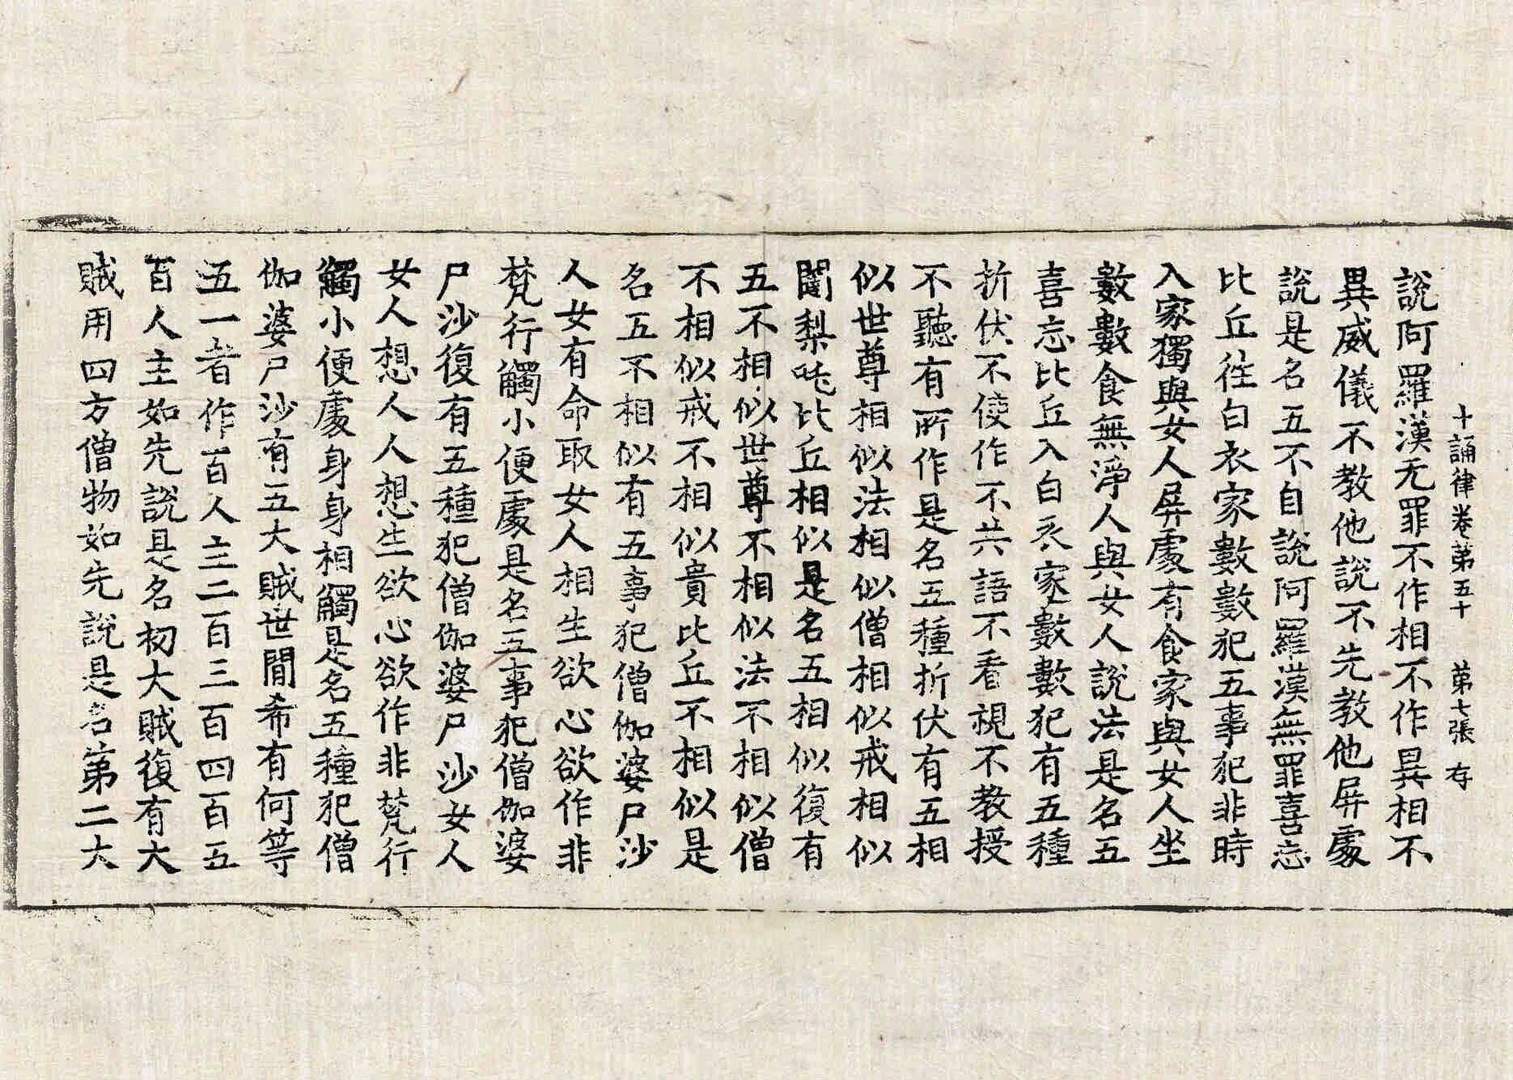 十誦律卷第五十　第七張　存
說阿羅漢无罪不作相不作異相不
異威儀不教他說不先教他屏處
說是名五不自說阿羅漢無罪喜忘
比丘徃白衣家數數犯五事犯非時
入家獨與女人屏處有食家與女人坐
數數食無淨人與女人說法是名五
喜忘比丘入白衣家數數犯有五種
折伏不使作不共語不看視不教授
不聽有所作是名五種折伏有五相
似世尊相似法相似僧相似戒相似
闍梨吒比丘相似是名五相似復有
五不相似世尊不相似法不相似僧
不相似戒不相似貴比丘不相似是
名五不相似有五事犯僧伽婆尸沙
人女有命取女人相生欲心欲作非
梵行觸小便處是名五事犯僧伽婆
尸沙復有五種犯僧伽婆尸沙女人
女人想人人想生欲心欲作非梵行
觸小便處身身相觸是名五種犯僧
伽婆尸沙有五大賊世間希有何等
五一者作百人主二百三百四百五
百人主如先說是名初大賊復有大
賊用四方僧物如先說是名第二大